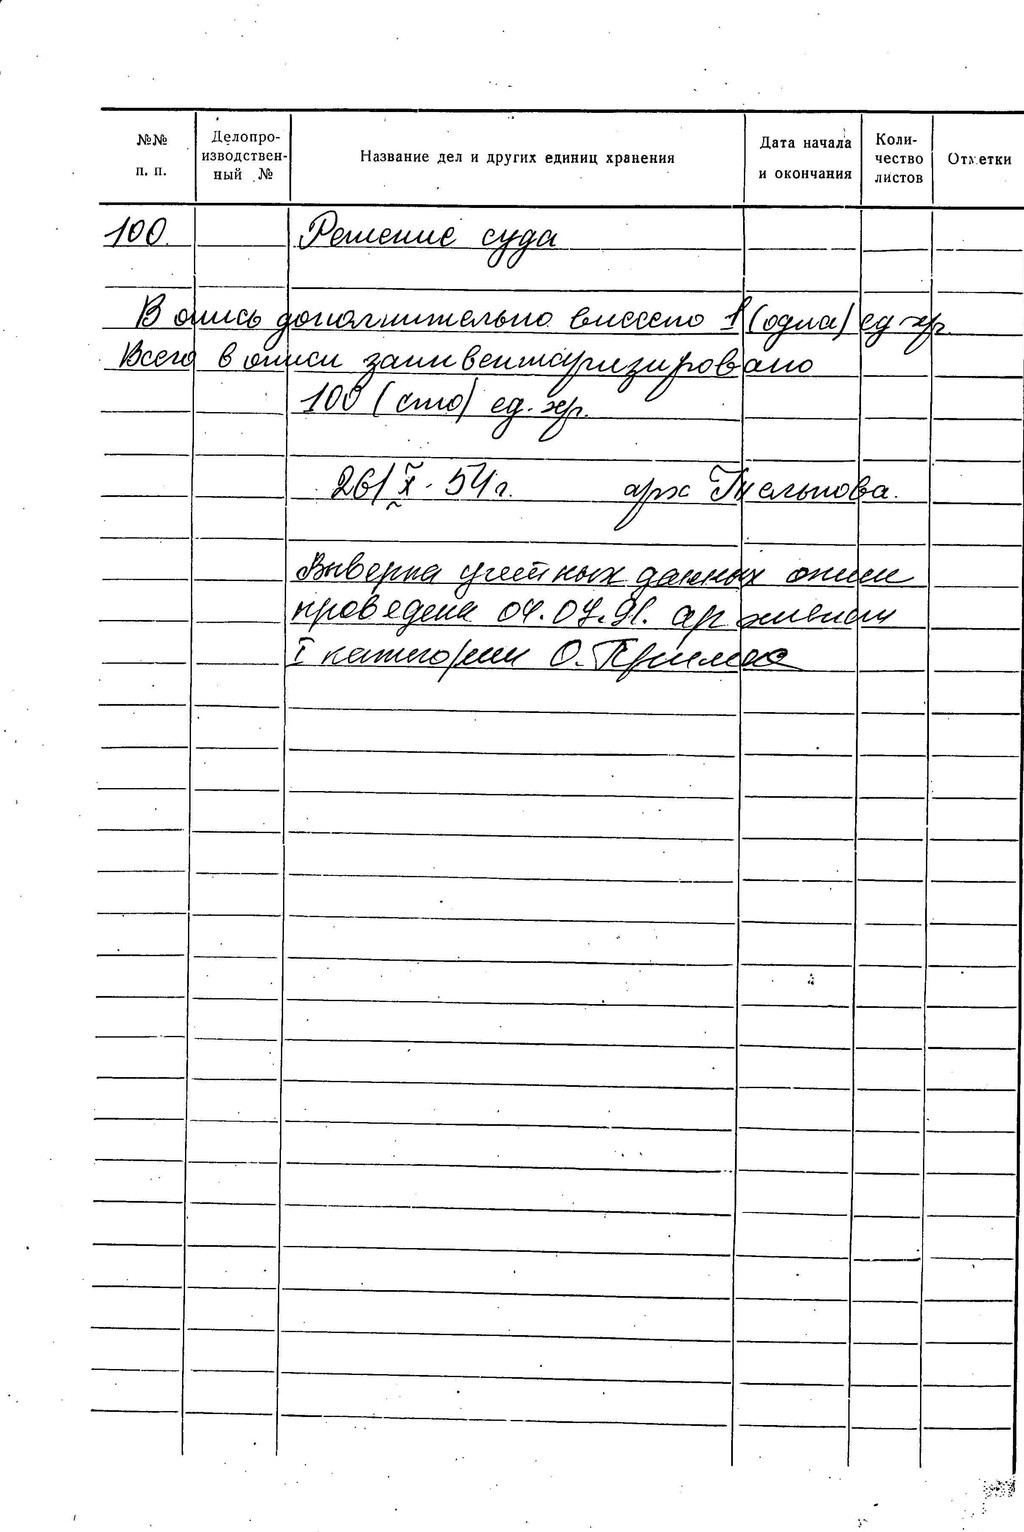 №№ п. п.
Делопро-
изводствен-
ный №
Название дел и других единиц хранения
Дата начала
и окончания
Коли-
чество
листов
Отметки
100. Решение суда
В опись дополнительно внесено 1 (одна) ед. хр.
Всего в описи заинвентаризировано
100 (сто) ед. хр.
26/X-54 г. арх
Выверка учетных данных описи
проведена 04.07.91. архивистом
I категории О.